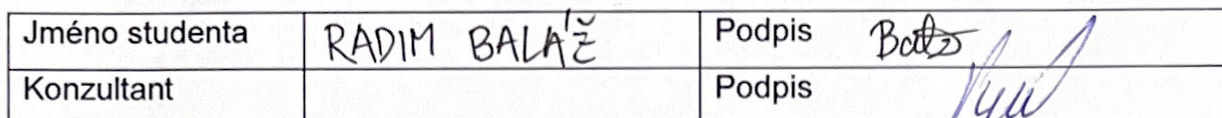 Jméno studenta RADIM BALÁŽ Podpis
Konzultant Podpis